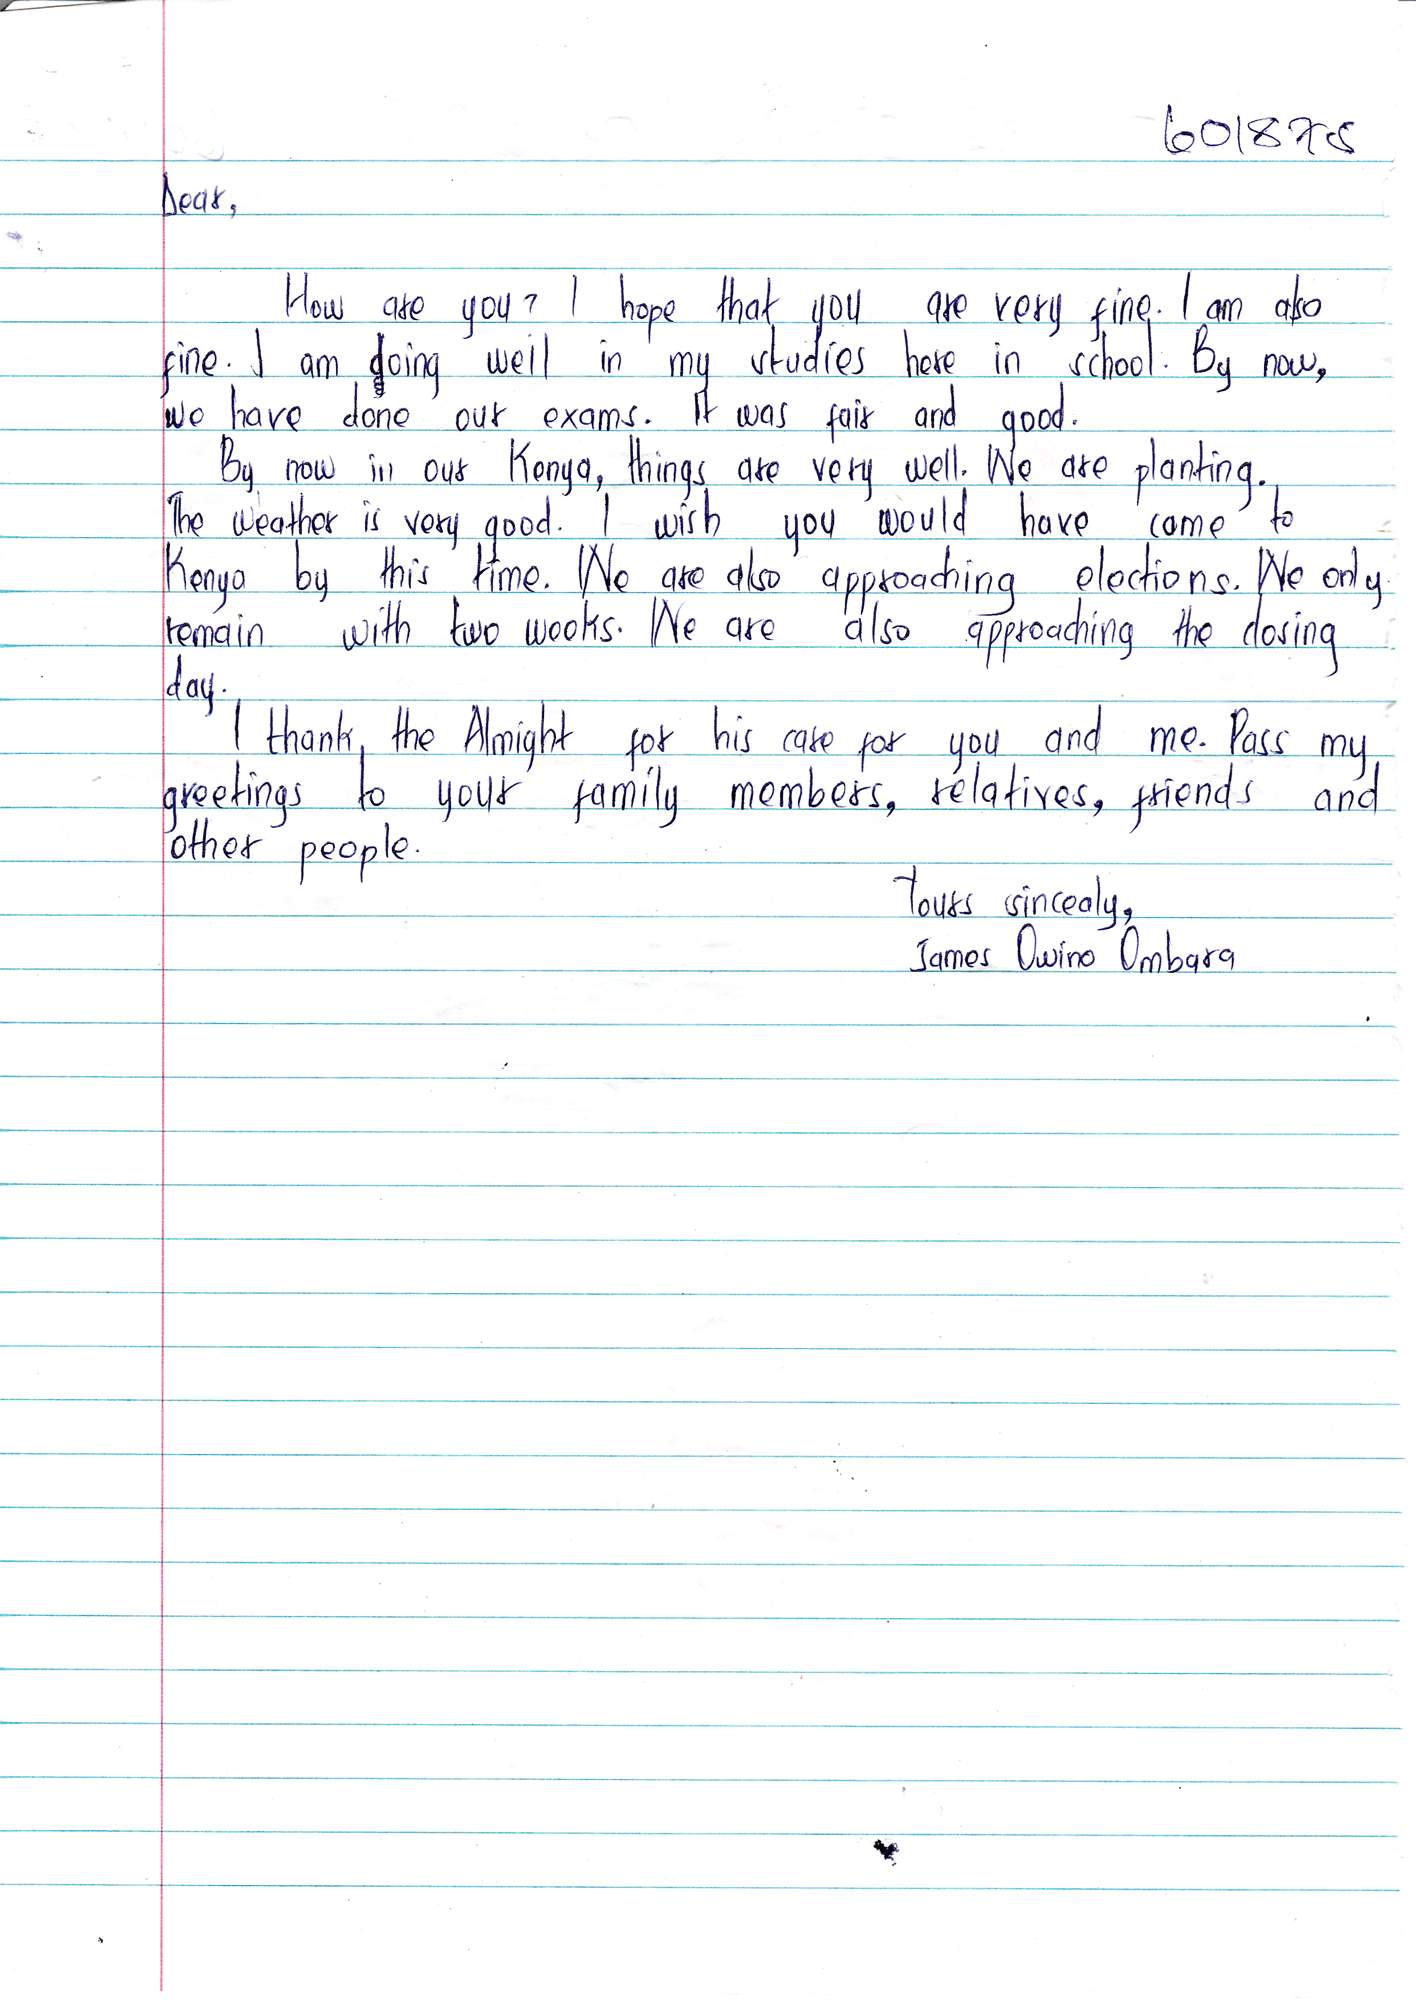 601875
Dear,
How are you? I hope that you are very fine. I am also
fine. I am doing well in my studies here in school. By now,
we have done our exams. It was fair and good.
By now in our Kenya, things are very well. We are planting.
The weather is very good. I wish you would have come to
Kenya by this time. We are also approaching elections. We only
remain with two weeks. We are also approaching the closing
day.
I thank the Almight for his care for you and me. Pass my
greetings to your family members, relatives, friends and
other people.
Yours sincealy,
James Owino Ombara